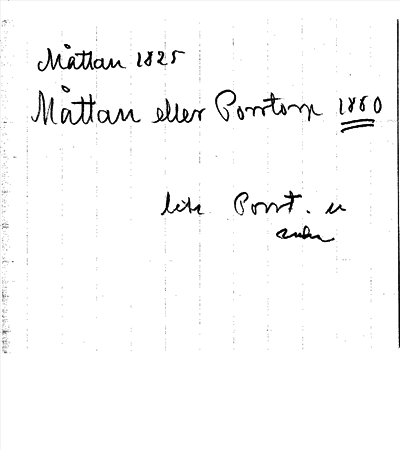 Måttan 1825
Måttan eller Porrtorp 1860
Porrt. u